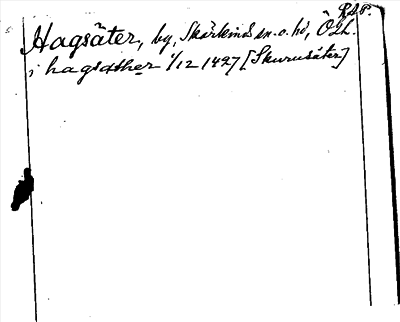 RAP.
Hagsäter, by, Skärkinds sn. o. hd, Ögl.
i hagsather 1/12 1427 [Skurusäter]